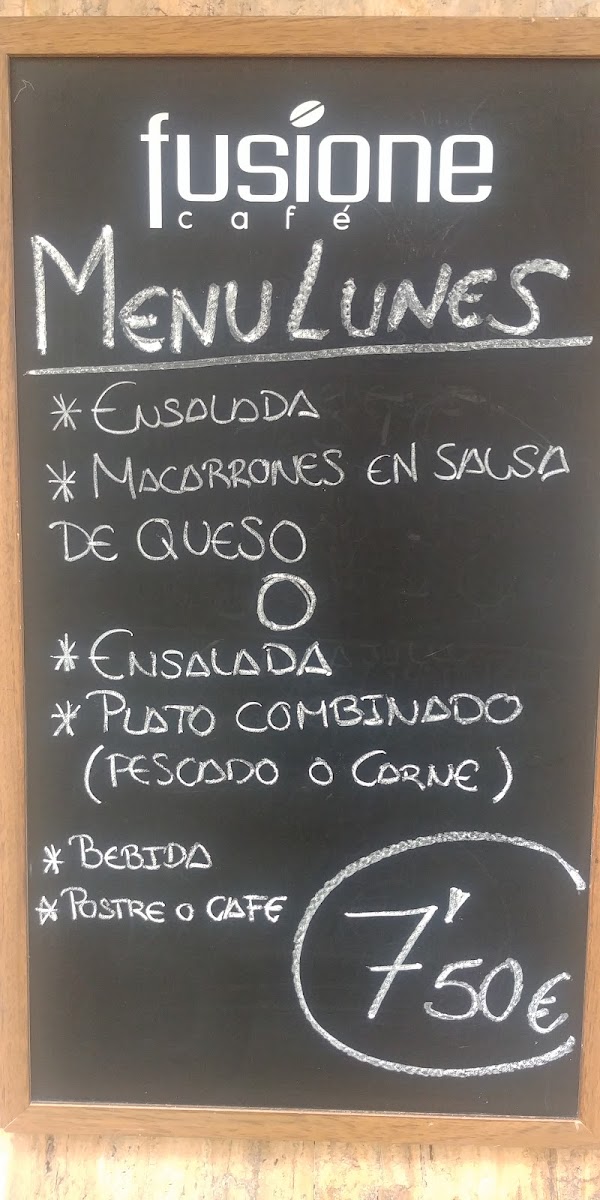 fusione
café
MENU LUNES
* ENSALADA
* MACARRONES EN SALSA
DE QUESO
O
* ENSALADA
* PLATO COMBINADO
(PESCADO O CARNE)
* BEBIDA
* POSTRE O CAFE
7'50€